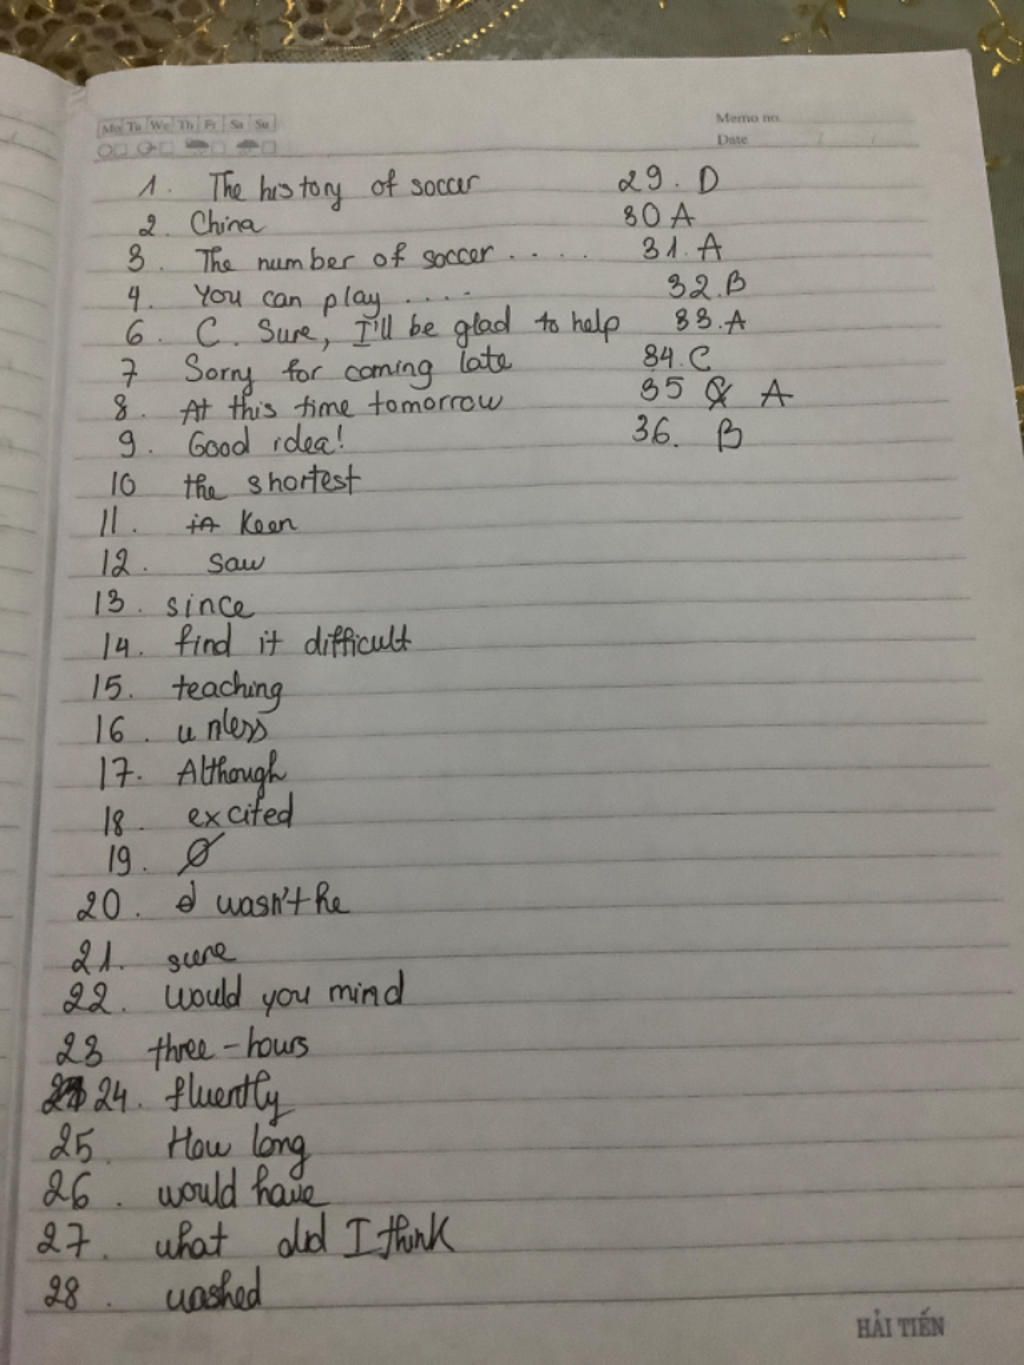 Mo Tu We Th Fr Sa Su
Memo no.
Date / /
1. The history of soccer
2. China
3. The number of soccer . . . .
4. You can play ....
6. C. Sure, I'll be glad to help
7 Sorry for coming late
8. At this time tomorrow
9. Good idea!
10 the shortest
11. in keen
12. saw
13. since
14. find it difficult
15. teaching
16. unless
17. Although
18. excited
19. Ø
20. wasn't he
21. sure
22. Would you mind
23 three-hours
24. fluently
25. How long
26. would have
27. what did I think
28. washed
29. D
30 A
31. A
32. B
33. A
34. C
35 A
36. B
HẢI TIẾN